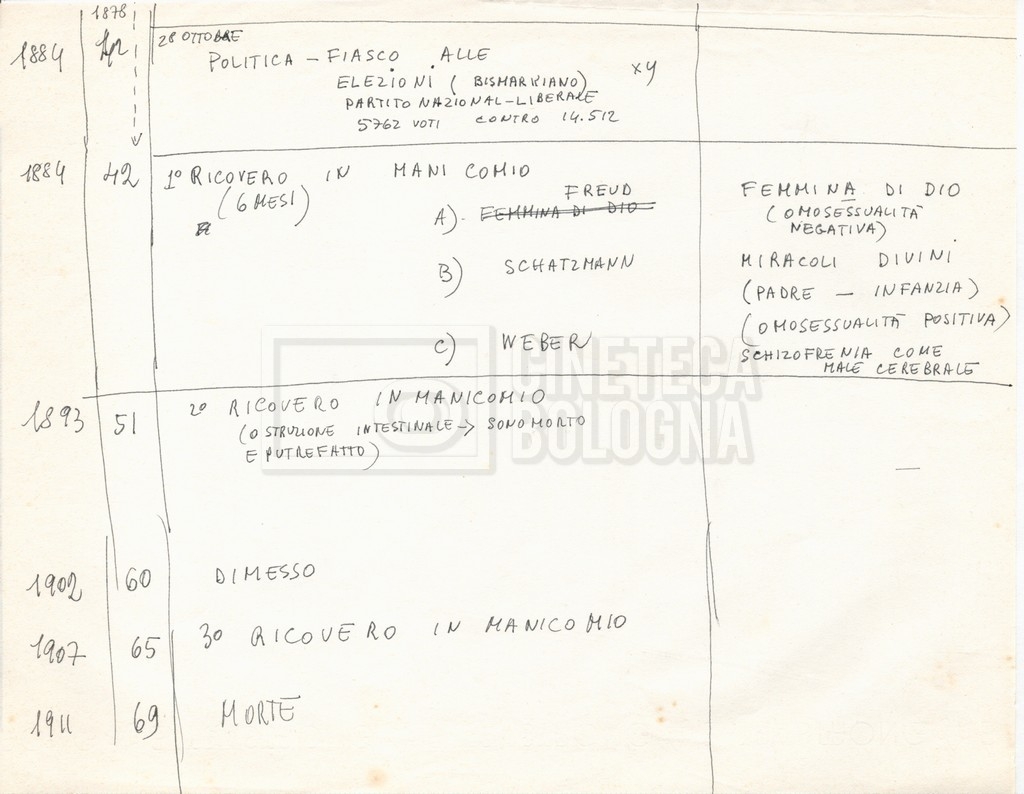 1878
1884 42 28 OTTOBRE
POLITICA - FIASCO ALLE
ELEZIONI (BISMARKIANO) XY
PARTITO NAZIONAL-LIBERALE
5762 VOTI CONTRO 14.512
1884 42 1º RICOVERO IN MANICOMIO
(6 MESI)
FREUD
A) - FEMMINA DI DIO
FEMMINA DI DIO
(OMOSESSUALITÀ
NEGATIVA)
B) SCHATZMANN
MIRACOLI DIVINI
(PADRE - INFANZIA)
(OMOSESSUALITÀ POSITIVA)
C) WEBER
SCHIZOFRENIA COME
MALE CEREBRALE
1893 51 2º RICOVERO IN MANICOMIO
(OSTRUZIONE INTESTINALE → SONO MORTO
E PUTREFATTO)
—
1902 60 DIMESSO
1907 65 3º RICOVERO IN MANICOMIO
1911 69 MORTE
CINETECA
BOLOGNA